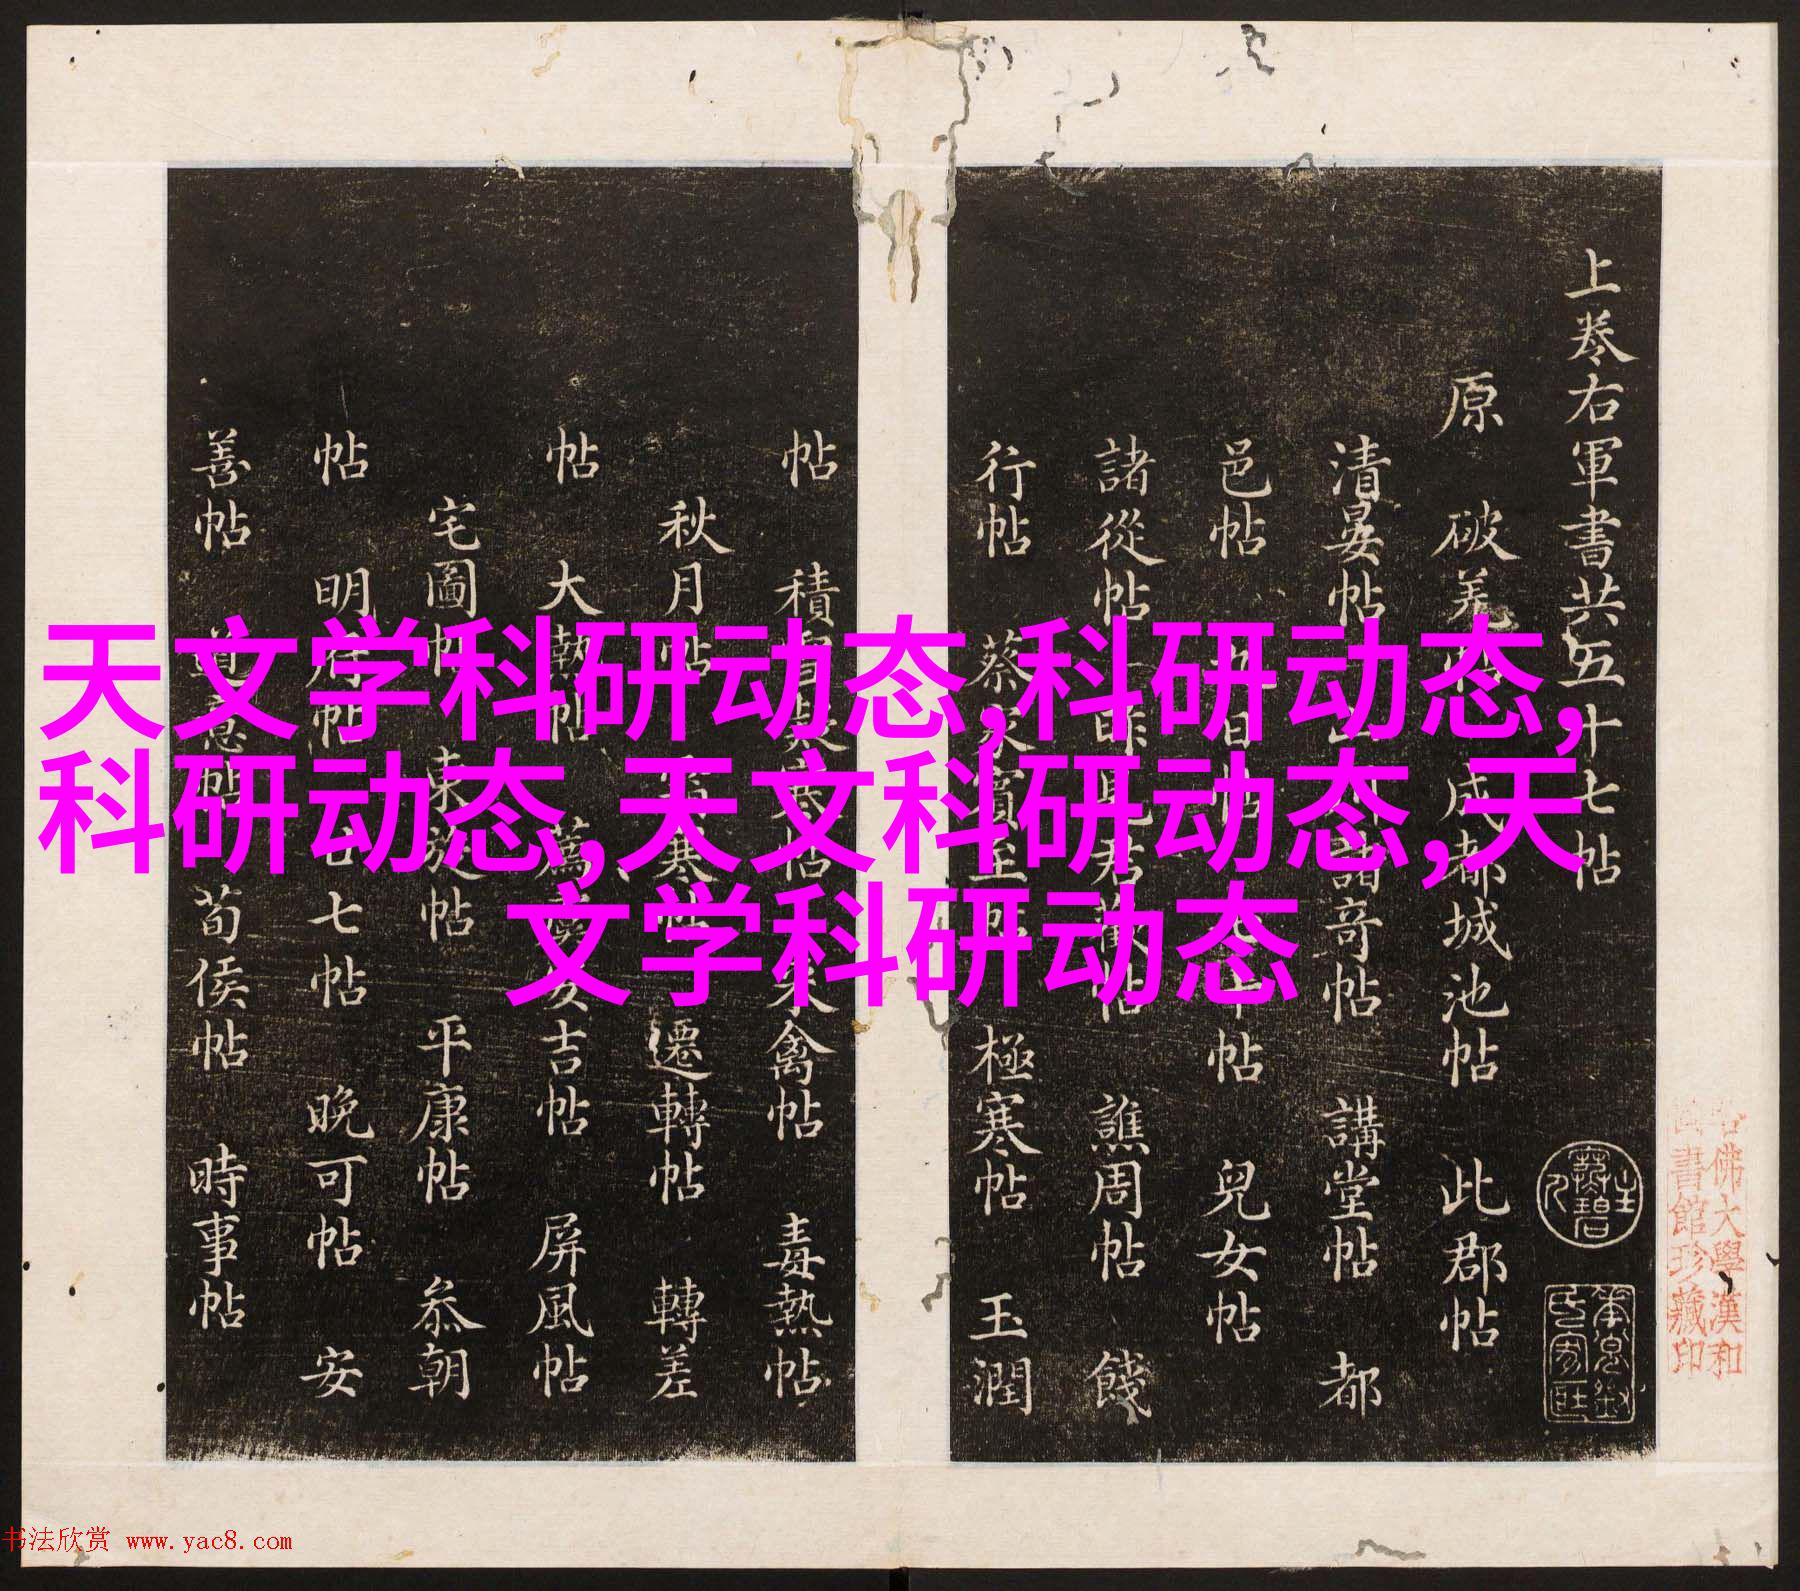 天文学科研动态,科研动态,
科研动态,天文科研动态,天
文学科研动态
上卷右軍書共五十七帖
原 破羌 成都城池帖 此郡帖
清晏帖 諸奇帖 講堂帖 都
邑帖 日帖 帖 兒女帖
諸從帖 昨見君歡帖 譙周帖 餞
行帖 蔡家賓至 極寒帖 玉潤
帖 積 帖 來禽帖 毒熱帖
秋月帖 寒帖 遷轉帖 轉差
帖 大熱帖 安吉帖 屏風帖
宅圖帖 東旋帖 平康帖 叅朝
帖 明府帖 廿七帖 晚可帖 安
善帖 帖 荀侯帖 時事帖
佛大學漢和
書館珍藏印
书法欣赏 www.yac8.com